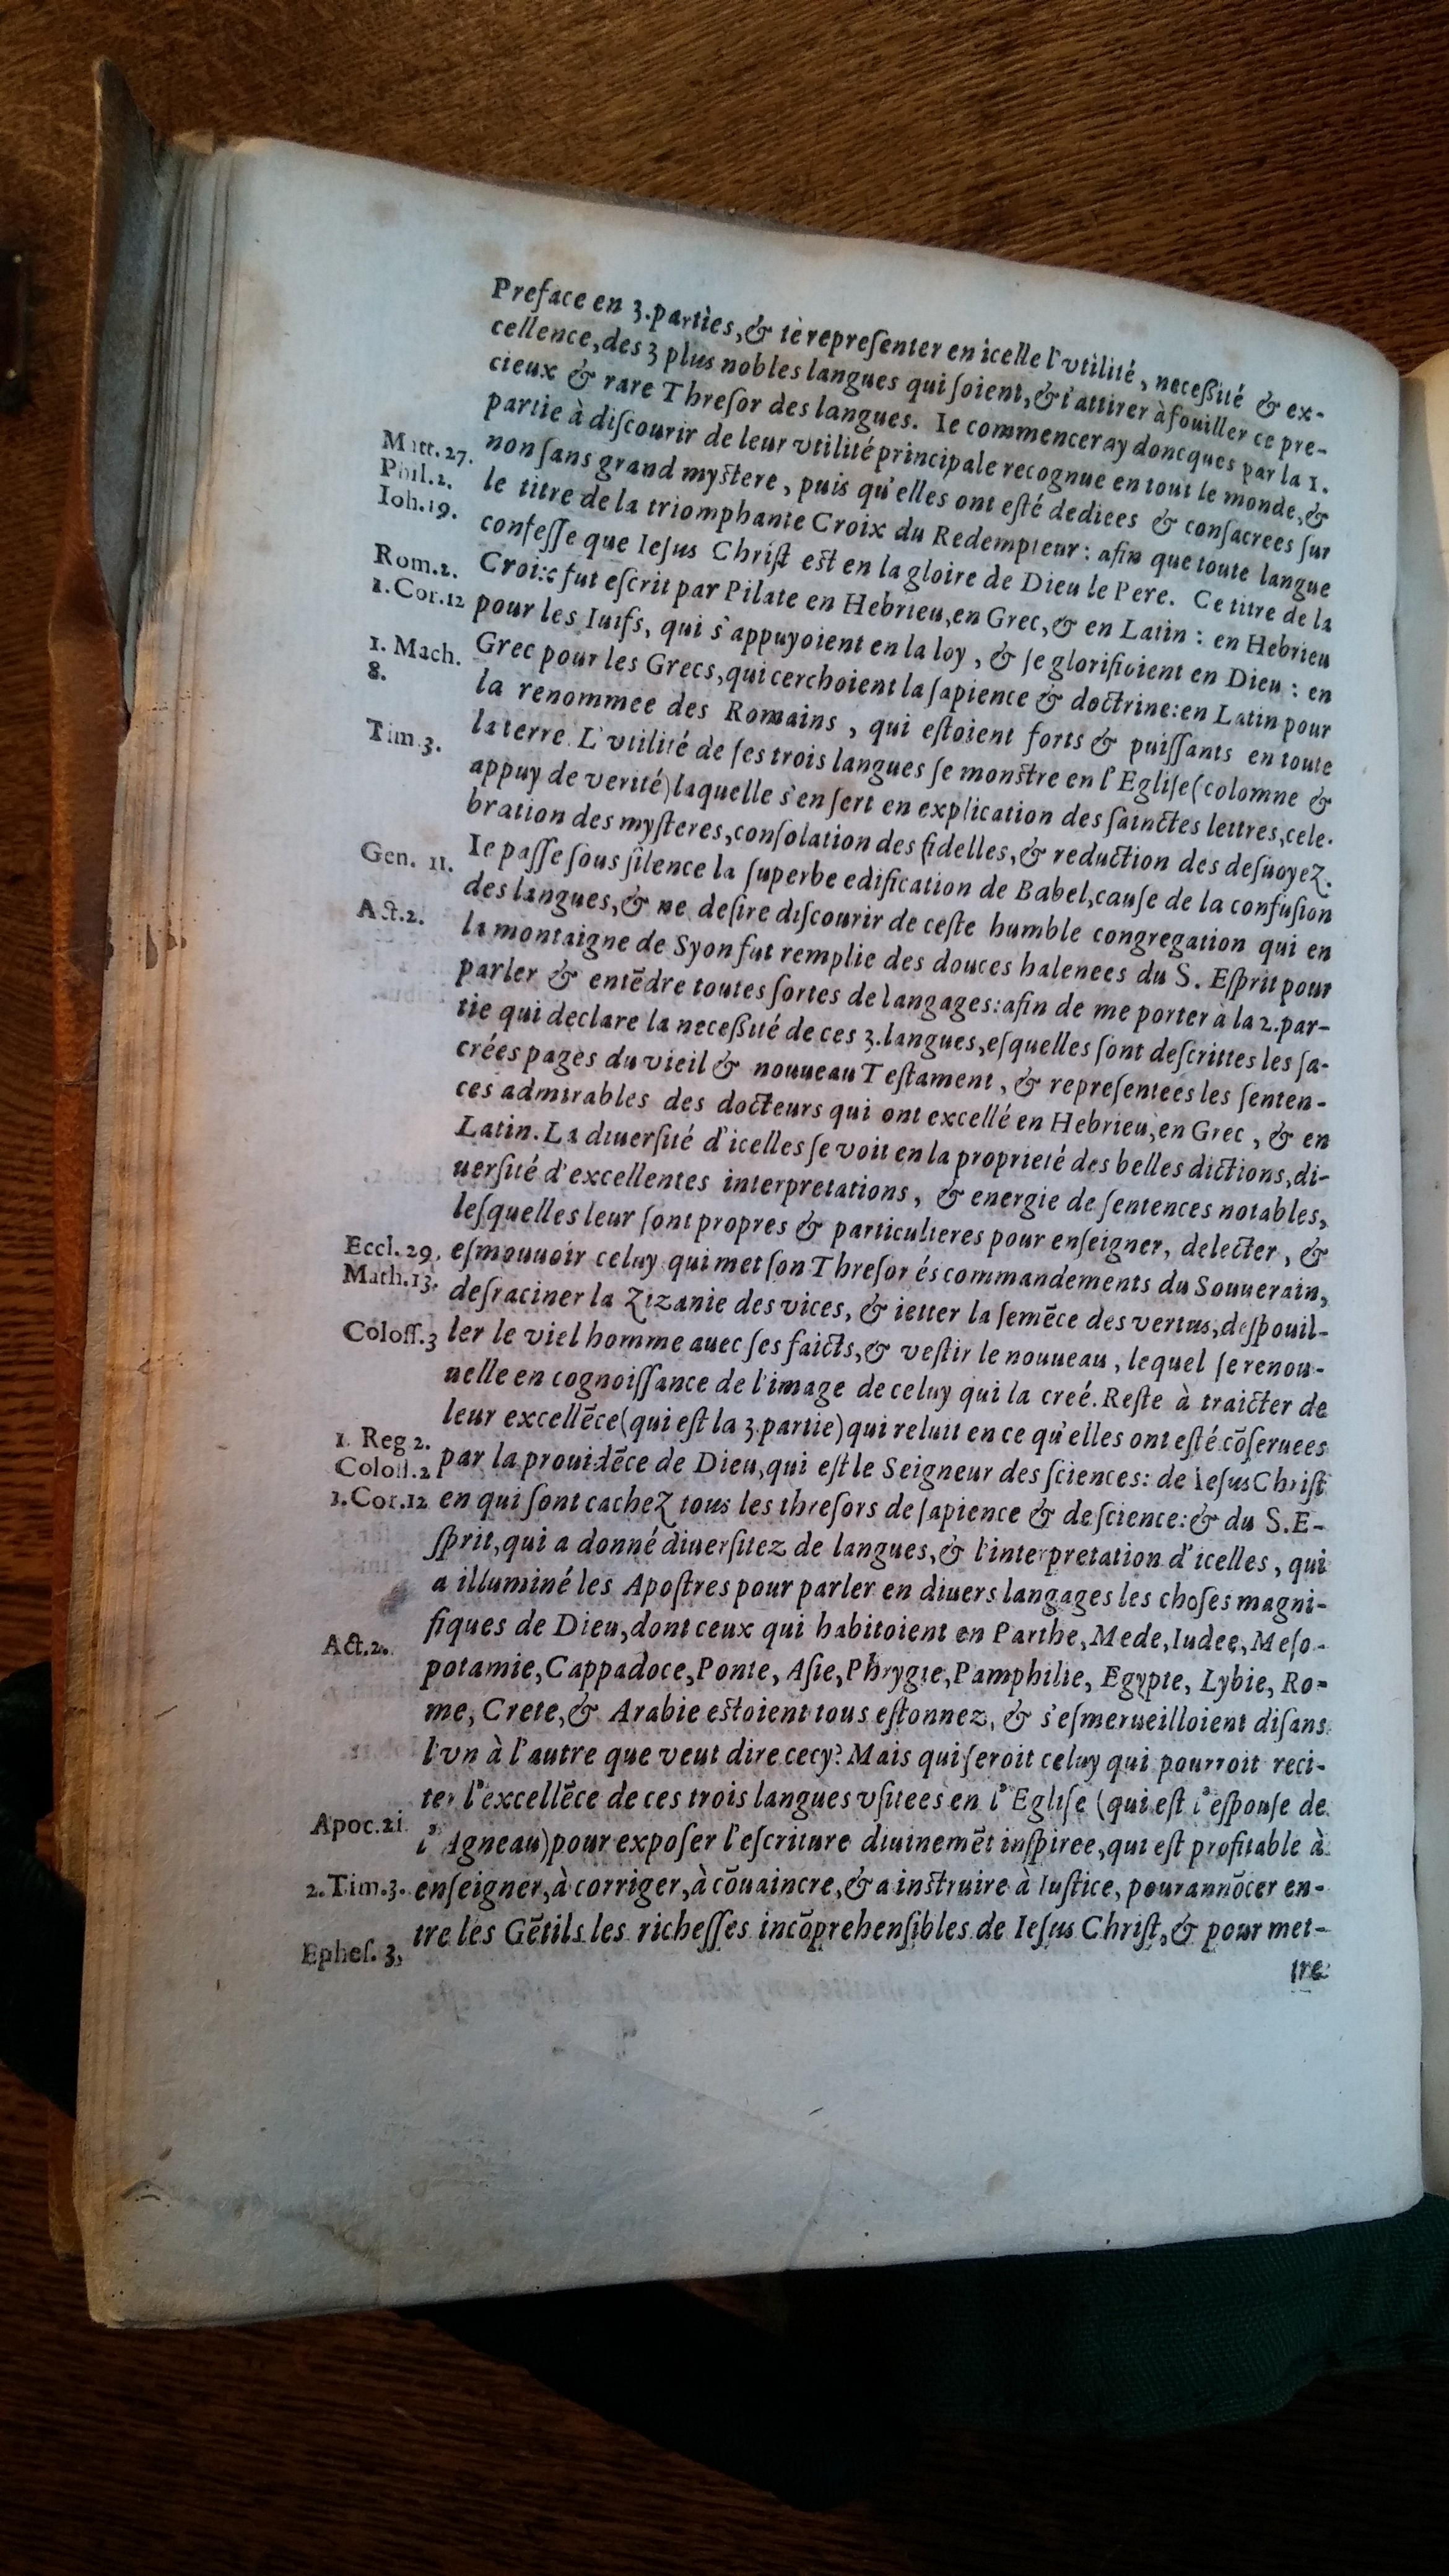 Preface en 3.parties,& te representer en icelle l'vtilité, necessité & ex-
cellence,des 3 plus nobles langues qui soient,& t'attirer à fouiller ce pre-
cieux & rare Thresor des langues. Ie commenceray doncques par la 1.
partie à discourir de leur vtilité principale recognue en tout le monde,&
Matt.27. non sans grand mystere, puis qu'elles ont esté dediees & consacrees sur
Phil.2. le titre de la triomphante Croix du Redempteur: afin que toute langue
Ioh.19. confesse que Iesus Christ est en la gloire de Dieu le Pere. Ce titre de la
Croix fut escrit par Pilate en Hebrieu,en Grec,& en Latin: en Hebrieu
Rom.2. pour les Iuifs, qui s'appuyoient en la loy, & se glorifioient en Dieu: en
1.Cor.12 Grec pour les Grecs,qui cerchoient la sapience & doctrine:en Latin pour
1. Mach. 8. la renommee des Romains, qui estoient forts & puissants en toute
la terre. L'vtilité de ses trois langues se monstre en l'Eglise(colomne &
Tim.3. appuy de verité)laquelle s'en sert en explication des sainctes lettres,cele-
bration des mysteres,consolation des fidelles,& reduction des desuoyez.
Ie passe sous silence la superbe edification de Babel,cause de la confusion
Gen. 11. des langues,& ne desire discourir de ceste humble congregation qui en
Act.2. la montaigne de Syon fut remplie des douces halenees du S. Esprit pour
parler & entēdre toutes sortes de langages:afin de me porter à la 2.par-
tie qui declare la necessité de ces 3.langues,esquelles sont descrittes les sa-
crées pages du vieil & nouueau Testament, & representees les senten-
ces admirables des docteurs qui ont excellé en Hebrieu,en Grec, & en
Latin. La diuersité d'icelles se voit en la proprieté des belles dictions,di-
uersité d'excellentes interpretations, & energie de sentences notables,
lesquelles leur sont propres & particulieres pour enseigner, delecter, &
Eccl.29. esmouuoir celuy qui met son Thresor és commandements du Souuerain,
Math.13. desraciner la Zizanie des vices, & ietter la semēce des vertus,despouil-
Coloss.3 ler le viel homme auec ses faicts,& vestir le nouueau, lequel se renou-
uelle en cognoissance de l'image de celuy qui la creé. Reste à traicter de
leur excellēce(qui est la 3.partie)qui reluit en ce qu'elles ont esté cōseruees
1. Reg 2. par la prouidēce de Dieu,qui est le Seigneur des sciences: de Iesus Christ
Coloss.2 en qui sont cachez tous les thresors de sapience & de science:& du S.E-
1.Cor.12 sprit,qui a donné diuersitez de langues,& l'interpretation d'icelles, qui
a illuminé les Apostres pour parler en diuers langages les choses magni-
fiques de Dieu,dont ceux qui habitoient en Parthe,Mede,Iudee,Meso-
Act.2. potamie,Cappadoce,Ponte, Asie,Phrygie,Pamphilie, Egypte, Lybie, Ro-
me, Crete,& Arabie estoient tous estonnez, & s'esmerueilloient disans
l'vn à l'autre que veut dire cecy? Mais qui seroit celuy qui pourroit reci-
ter l'excellēce de ces trois langues vsitees en l'Eglise (qui est l'espouse de
Apoc.21. l'Agneau)pour exposer l'escriture diuinemēt inspiree,qui est profitable à
2.Tim.3. enseigner,à corriger,à cōuaincre,& a instruire à Iustice, pour annōcer en-
Ephes. 3, tre les Gētils les richesses incōprehensibles de Iesus Christ,& pour met-
tre